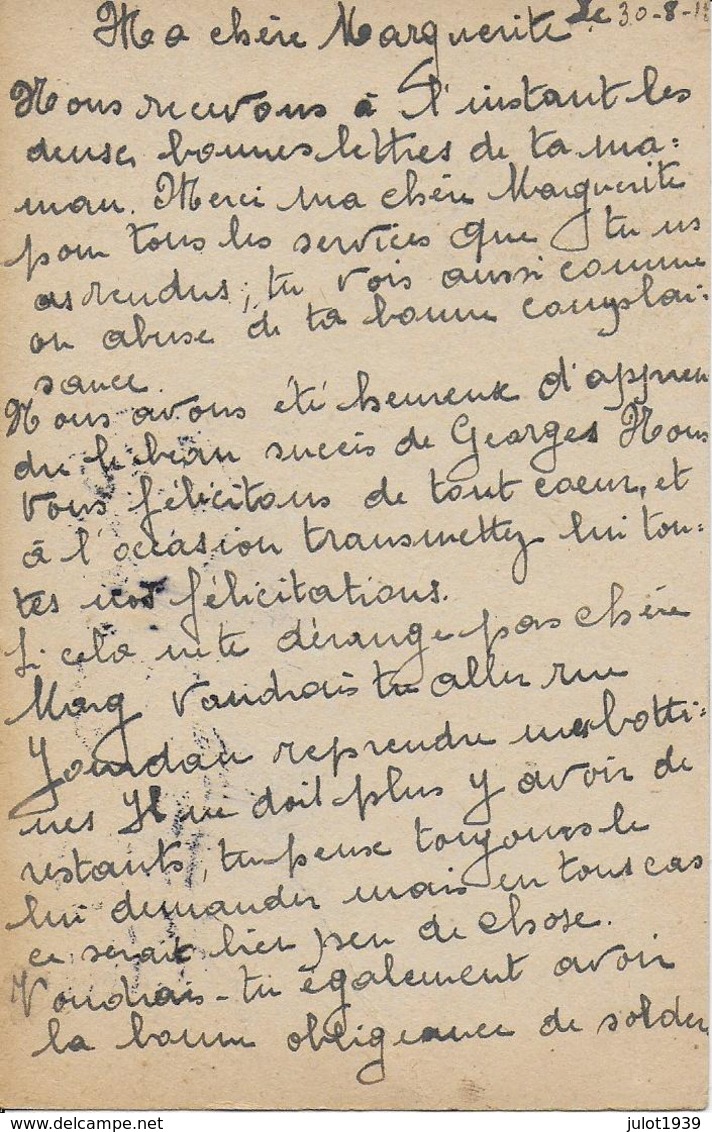 Ma chère Marguerite Le 30-8-1
Nous recevons à l'instant les
deuxs bonnes lettres de ta ma=
man. Merci ma chère Marguerite
pour tous les services que tu ns
as rendus; tu vois aussi comme
on abuse de ta bonne complai=
sance.
Nous avons été heureux d'appren
dre le beau succès de Georges Nous
vous félicitons de tout coeur, et
à l'occasion transmettez lui tou=
tes nos félicitations.
Si cela ne te dérange pas chère
Marg Vaudrais tu aller rue
Jourdan reprendre mes botti=
nes Il ne doit plus y avoir de
restants, tu peux toujours le
lui demander mais en tous cas
ce serait bien peu de chose.
Voudrais-tu également avoir
la bonne obligeance de solder
delcampe.net
julot1939